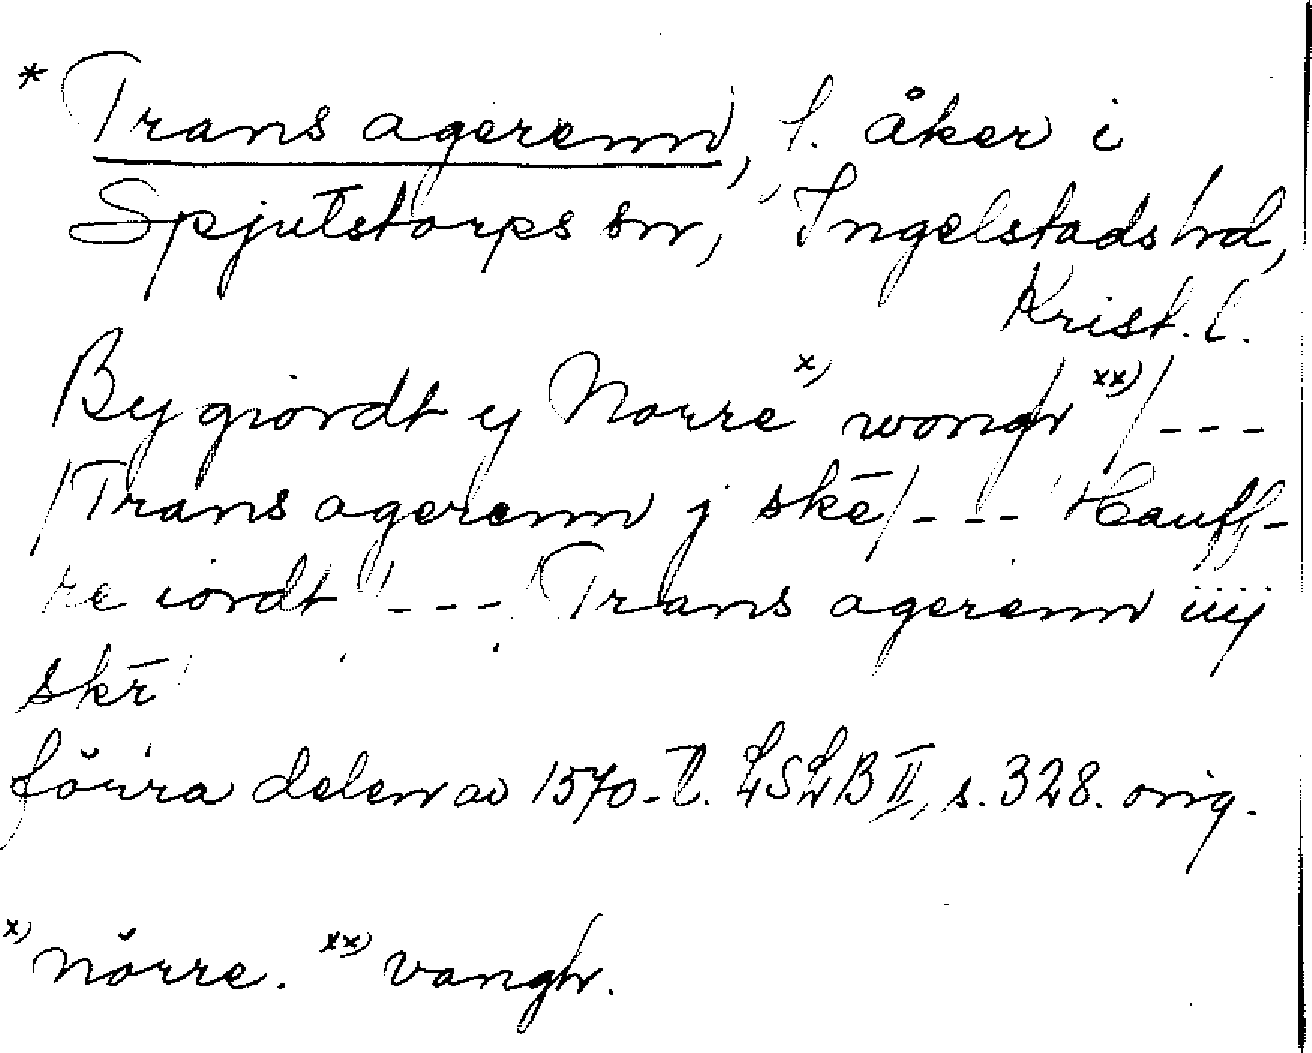 * Trans agerenn, f. åker i
Spjutstorps sn, Ingelstads hd,
Krist. l.
By giordt y Norre x) wongh xx) / ---
/ Trans agerenn j skē / --- Hauff-
re iordt / --- / Trans agerenn iiij
skē /
förra delen av 1570-t. LSLB II, s. 328. orig.
x) nörre. xx) vangh.